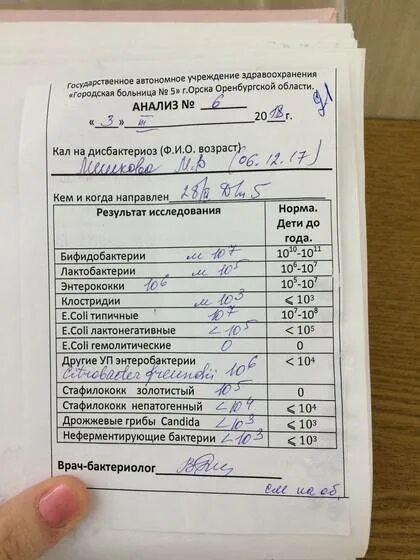 Государственное автономное учреждение здравоохранения
«Городская больница № 5» г.Орска Оренбургской области.
АНАЛИЗ № 6
« 3 » III 2018г.
Кал на дисбактериоз (Ф.И.О. возраст)
М.В (06.12.17)
Кем и когда направлен 28/II 5
Результат исследования Норма. Дети до года.
Бифидобактерии м 10⁷ 10¹⁰-10¹¹
Лактобактерии м 10⁵ 10⁶-10⁷
Энтерококки 10⁶ 10⁵-10⁷
Клостридии м 10³ ⩽ 10³
E.Coli типичные 10⁷ 10⁷-10⁸
E.Coli лактонегативные <10⁵ < 10⁵
E.Coli гемолитические 0 0
Другие УП энтеробактерии 10⁶ < 10⁴
Citrobacter freundii
Стафилококк золотистый 10⁵ 0
Стафилококк непатогенный <10⁴ ⩽ 10⁴
Дрожжевые грибы Candida <10³ ⩽ 10³
Неферментирующие бактерии <10³ ⩽ 10³
Врач-бактериолог
см на об.